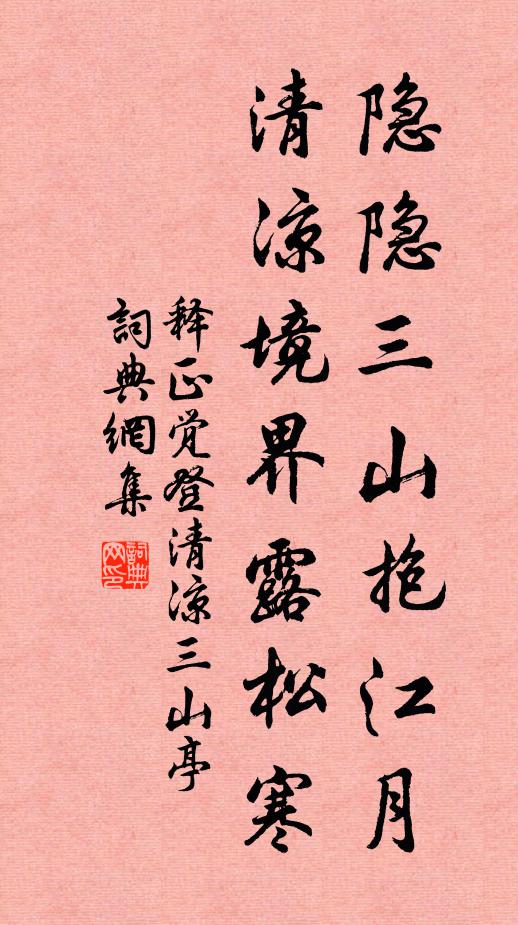 隐隐三山抱江月
清凉境界露松寒
释正觉登清凉三山亭
詞典網集
詞典网印